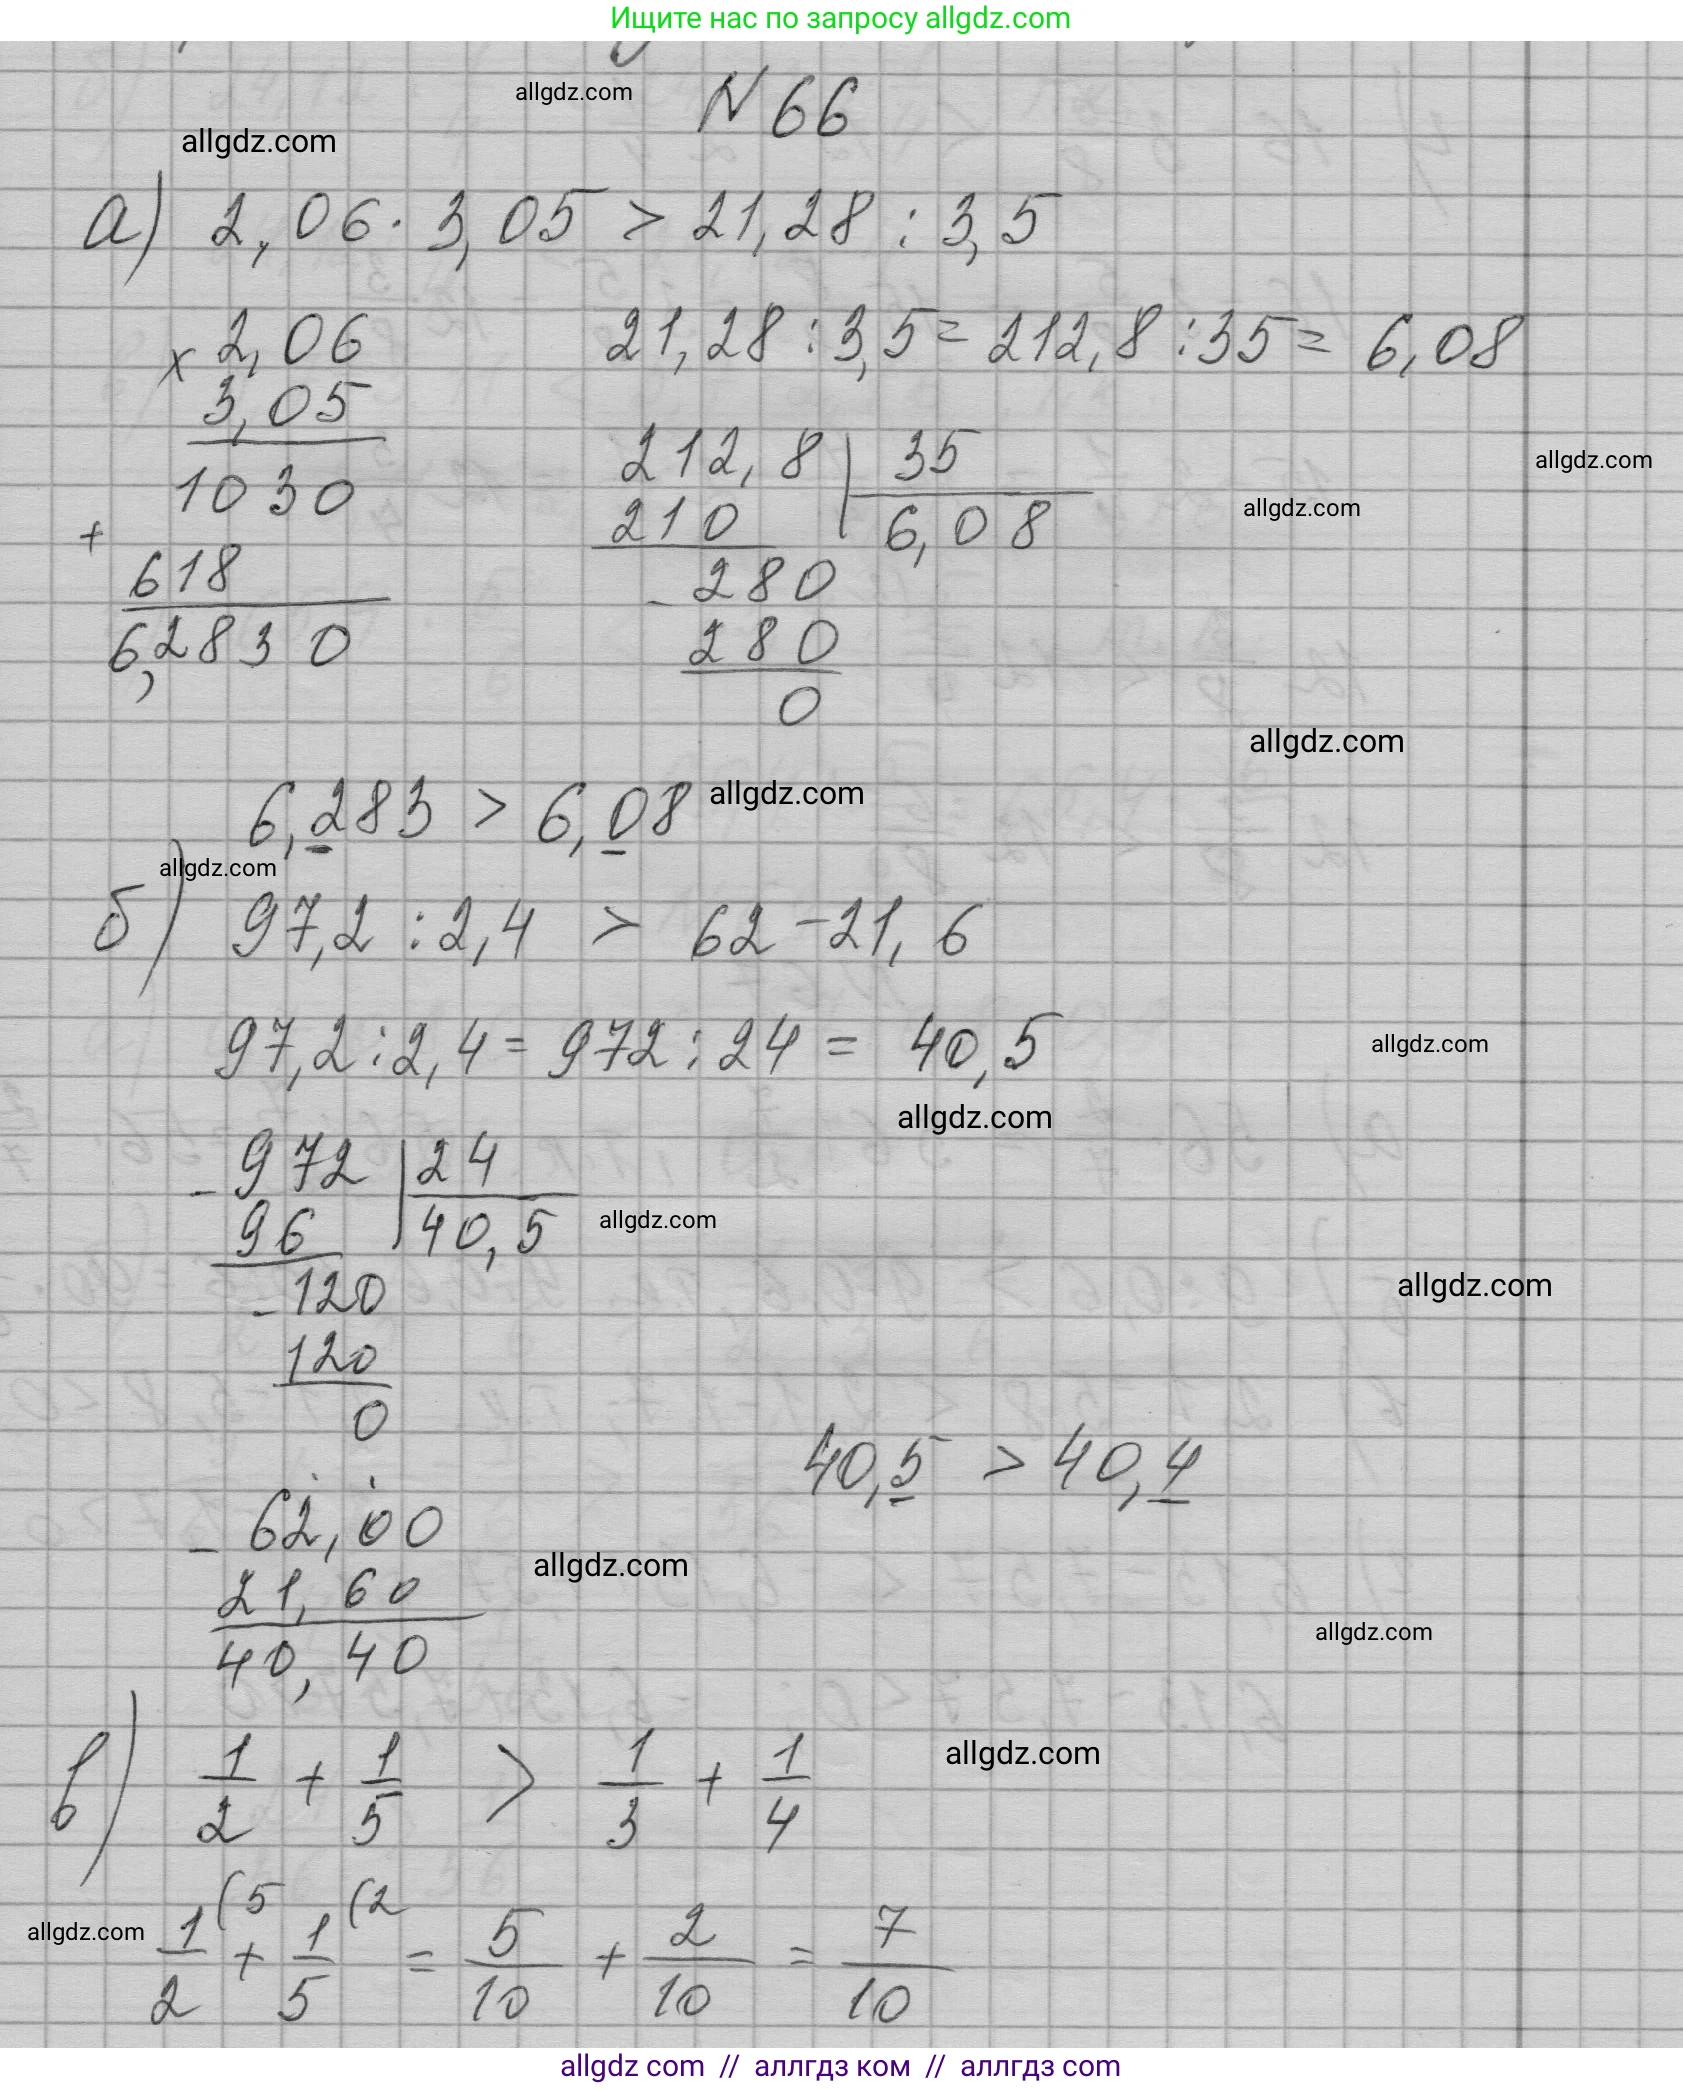 Ищите нас по запросу allgdz.com
allgdz.com
N 66
allgdz.com
а) 2,06 · 3,05 > 21,28 : 3,5
× 2,06
3,05
1030
+
618
6,2830
21,28 : 3,5 = 212,8 : 35 = 6,08
212,8 | 35
210 6,08
- 280
280
0
allgdz.com
allgdz.com
allgdz.com
6,283 > 6,08
allgdz.com
allgdz.com
б) 97,2 : 2,4 > 62 - 21,6
97,2 : 2,4 = 972 : 24 = 40,5
allgdz.com
allgdz.com
- 972 | 24
96 40,5
- 120
120
0
allgdz.com
allgdz.com
40,5 > 40,4
- 62,00
21,60
40,40
allgdz.com
allgdz.com
в) 1/2 + 1/5 > 1/3 + 1/4
allgdz.com
allgdz.com
1/2 (5 + 1/5 (2 = 5/10 + 2/10 = 7/10
allgdz com // аллгдз ком // аллгдз com